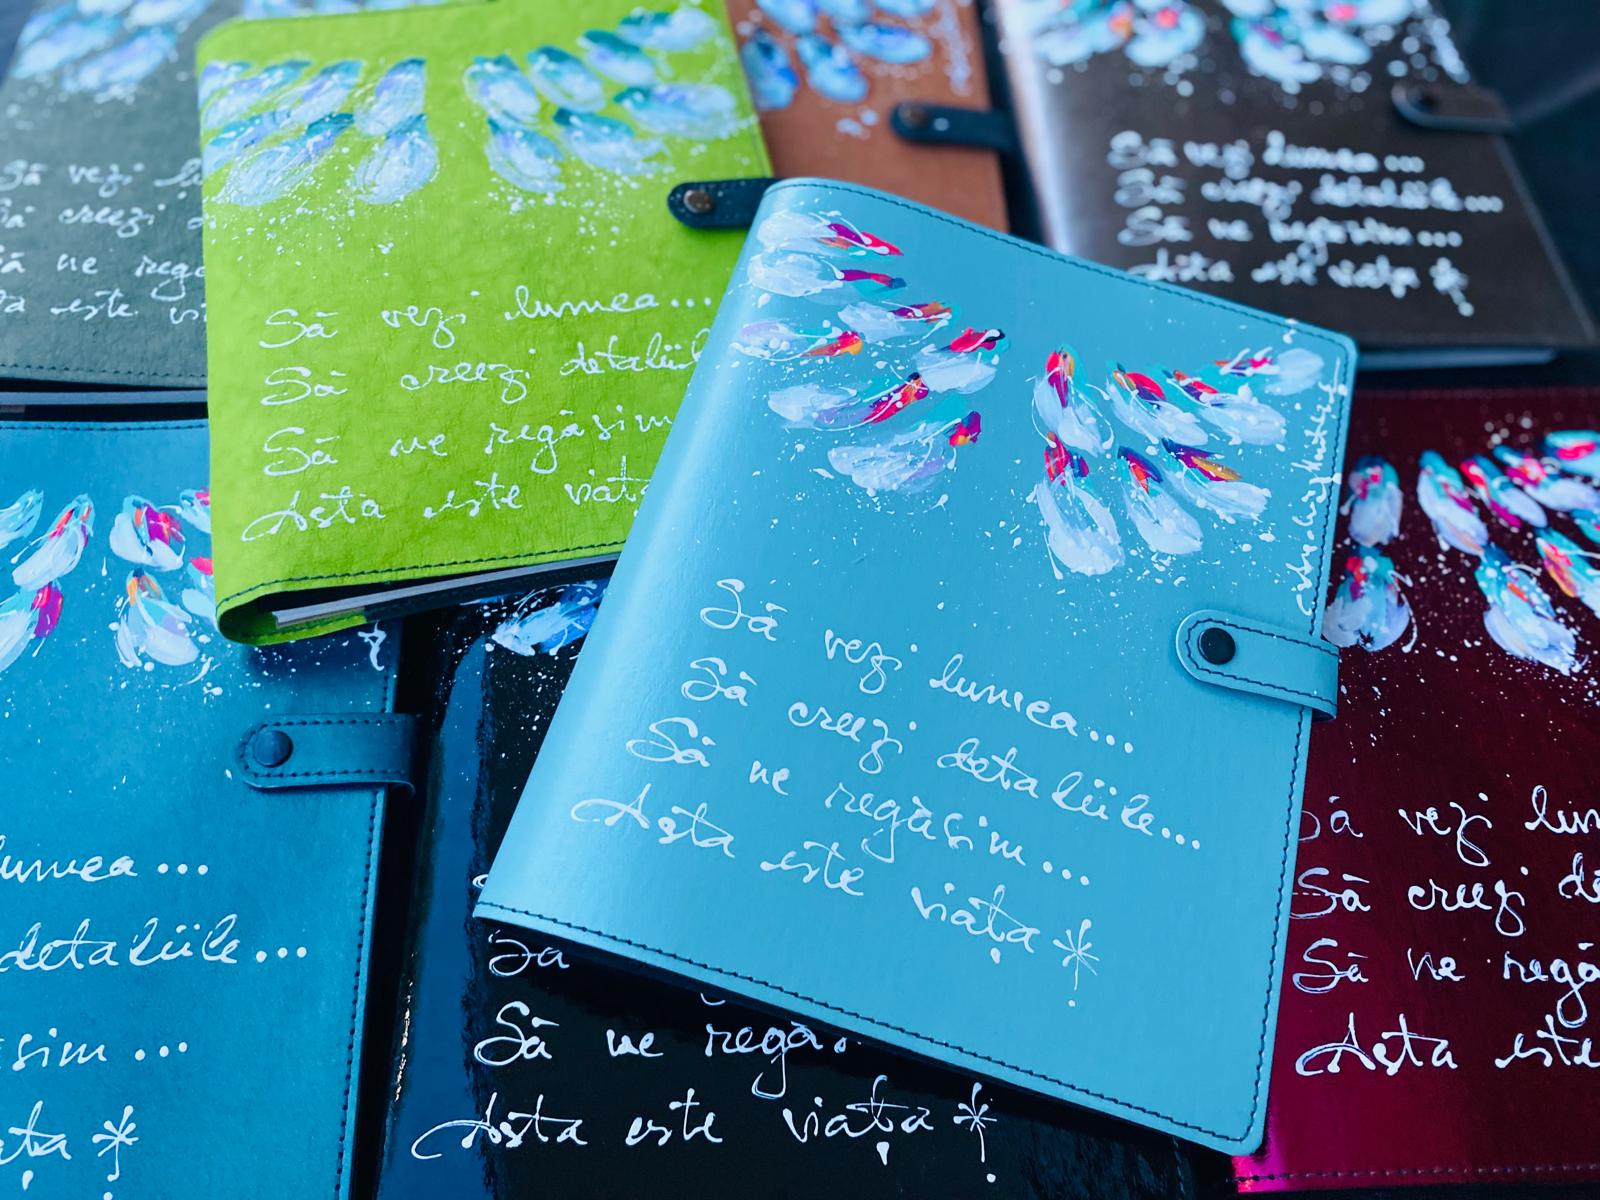 Să vezi
Să creezi
să ne regă
este
Să vezi lumea...
Să creezi detaliil
Să ne regăsim
Asta este viața
Să vezi lumea...
Să creezi detaliile...
Să ne regăsim...
Asta este viața *
Să vezi lumea...
Să creezi detaliile...
Să ne regăsim...
Asta este viața *
lumea...
detaliile...
sim...
ața *
Să
Să ne regă
Asta este viața *
Să vezi lum
Să creezi de
Să ne regă
Asta este